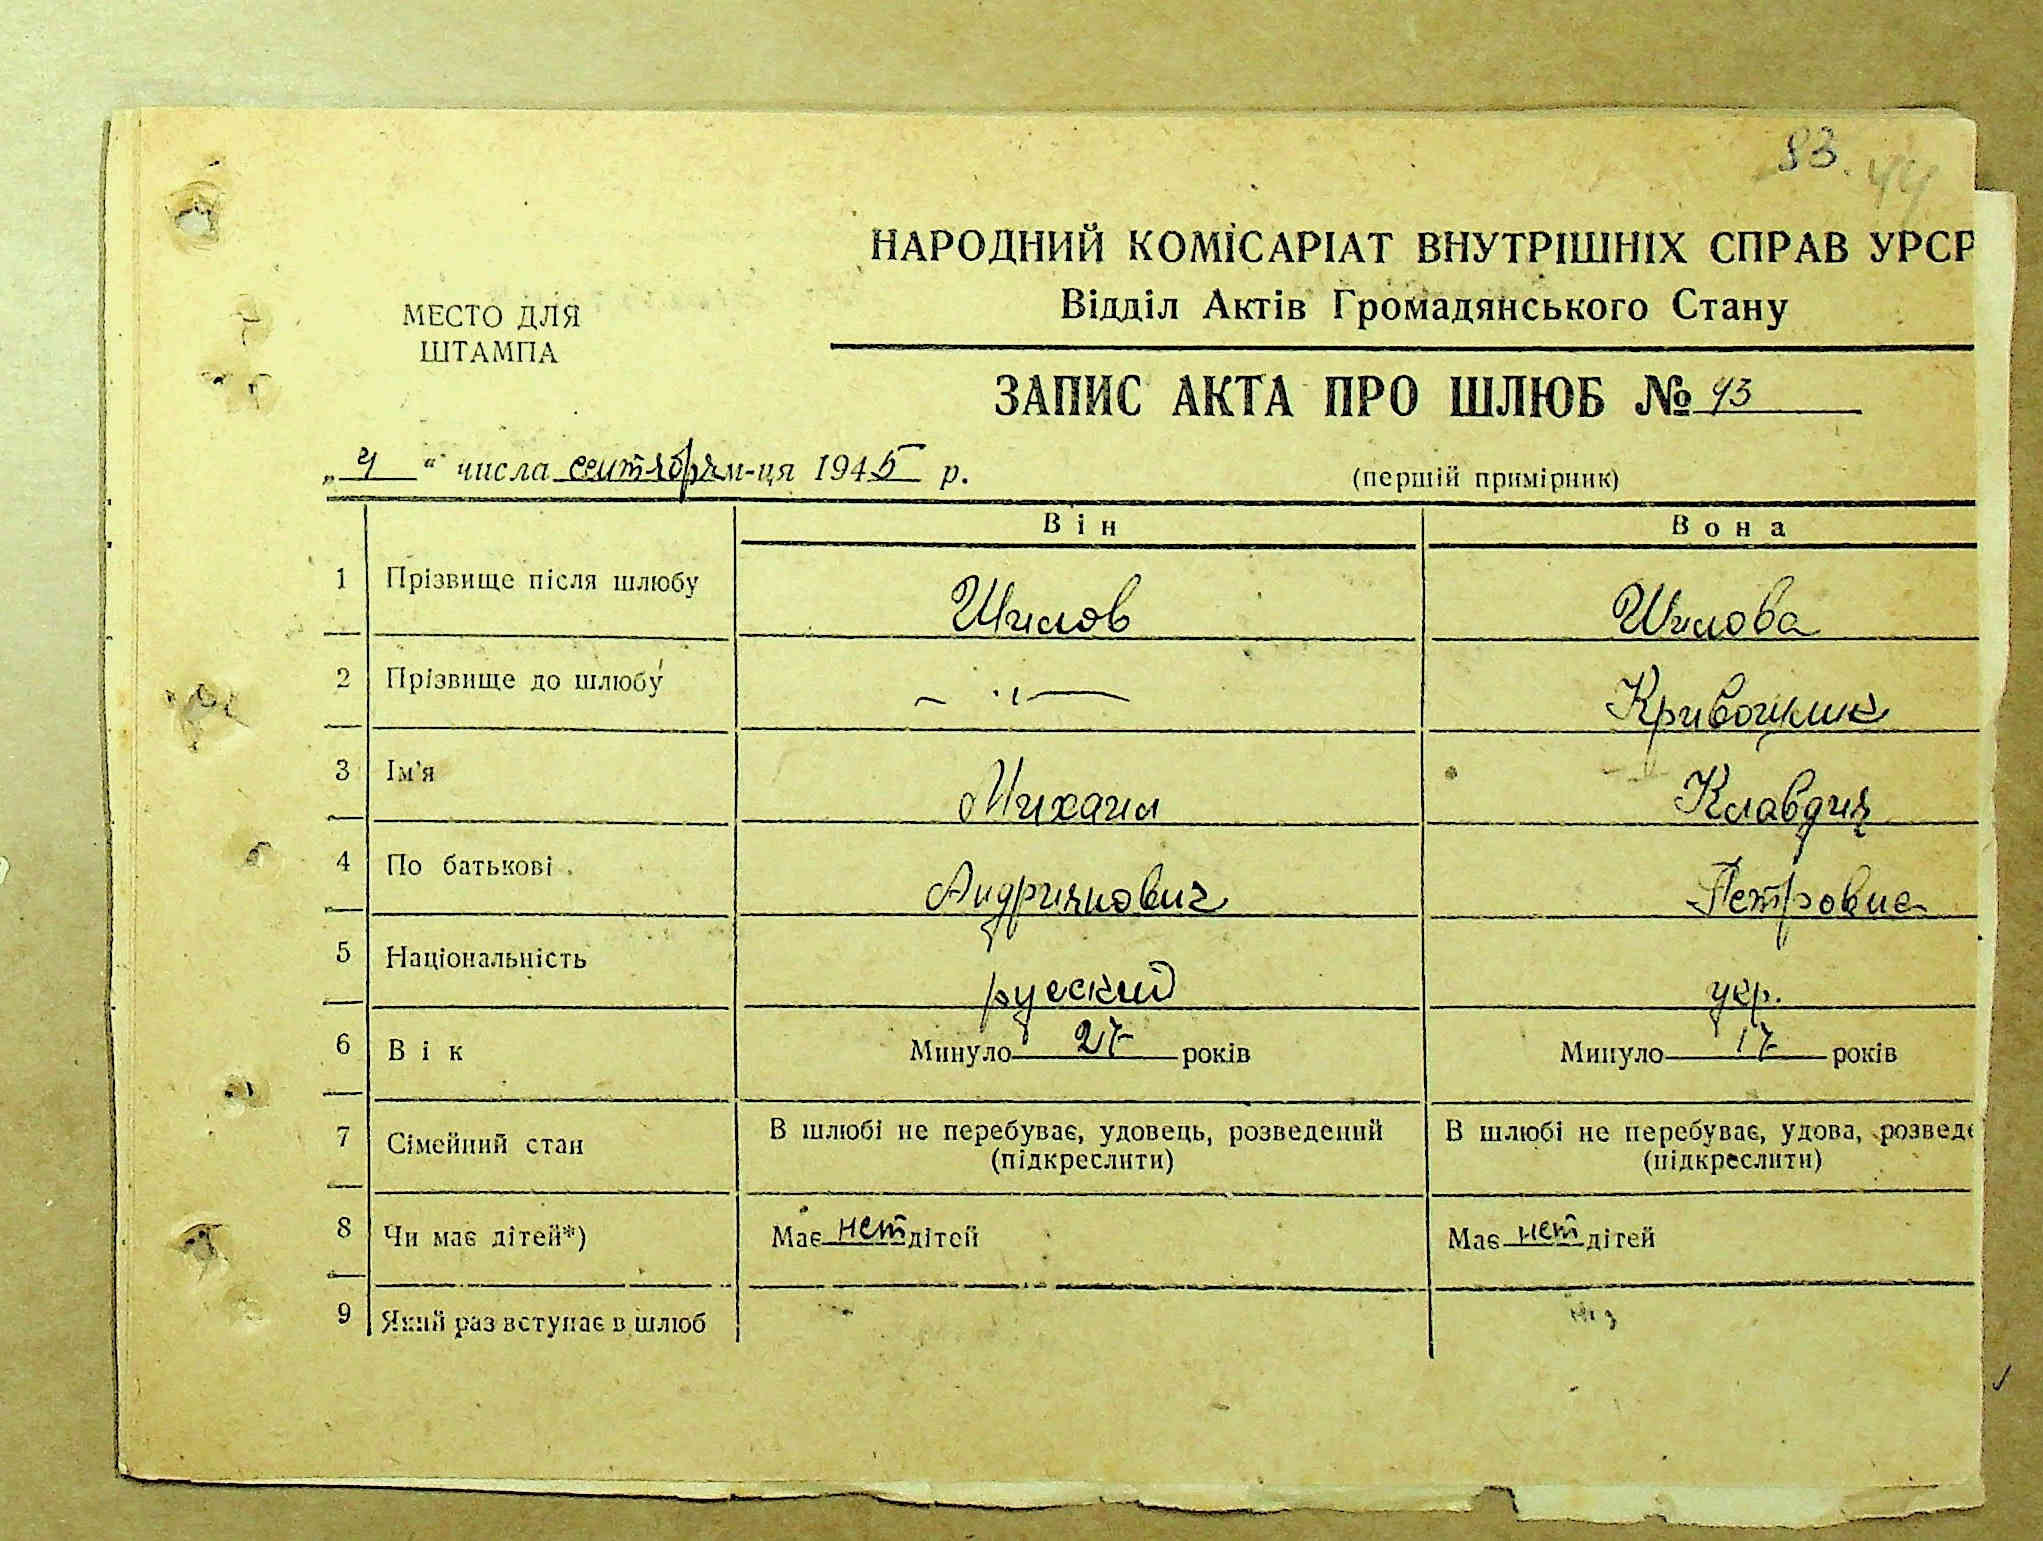 93. 44
НАРОДНИЙ КОМІСАРІАТ ВНУТРІШНІХ СПРАВ УРСР
Відділ Актів Громадянського Стану
МЕСТО ДЛЯ
ШТАМПА
ЗАПИС АКТА ПРО ШЛЮБ № 43
„ 4 “ числа сентября м-ця 1945 р.
(першій примірник)
Він Вона
1 Прізвище після шлюбу Шилов Шилова
2 Прізвище до шлюбу — ·ı—
3 Ім'я Михаил Клавдия
4 По батькові Андриянович Петровна
5 Національність русский укр.
6 Вік Минуло 27 років Минуло 17 років
7 Сімейний стан В шлюбі не перебуває, удовець, розведений В шлюбі не перебуває, удова, розведе
(підкреслити) (підкреслити)
8 Чи має дітей*) Має нет дітей Має нет дітей
9 Який раз вступає в шлюб